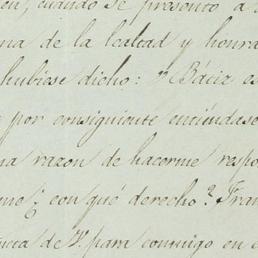 en, cuando se presentó a
na de la lealtad y honra
hubiese dicho: "Báciz es
por consiguiente entiéndase
na razon de hacerme resp
me ¿con qué derecho? Fran
de V. para conmigo en